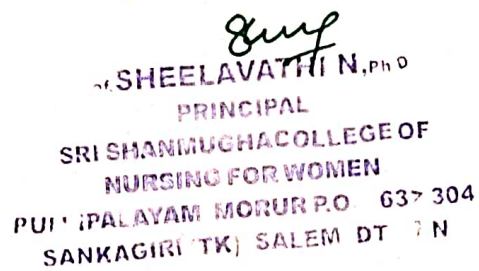 SHEELAVATHI N, Ph D
PRINCIPAL
SRI SHANMUGHA COLLEGE OF
NURSING FOR WOMEN
MORUR P.O 304
SANKAGIRI (TK) SALEM DT